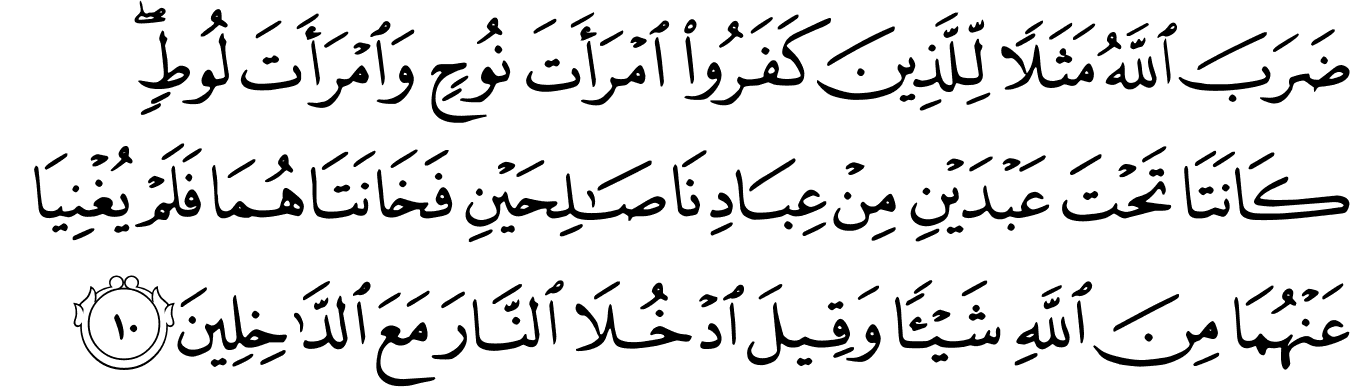 ضَرَبَ ٱللَّهُ مَثَلًا لِّلَّذِينَ كَفَرُوا۟ ٱمْرَأَتَ نُوحٍ وَٱمْرَأَتَ لُوطٍ ۖ
كَانَتَا تَحْتَ عَبْدَيْنِ مِنْ عِبَادِنَا صَـٰلِحَيْنِ فَخَانَتَاهُمَا فَلَمْ يُغْنِيَا
عَنْهُمَا مِنَ ٱللَّهِ شَيْـًٔا وَقِيلَ ٱدْخُلَا ٱلنَّارَ مَعَ ٱلدَّٰخِلِينَ ١٠